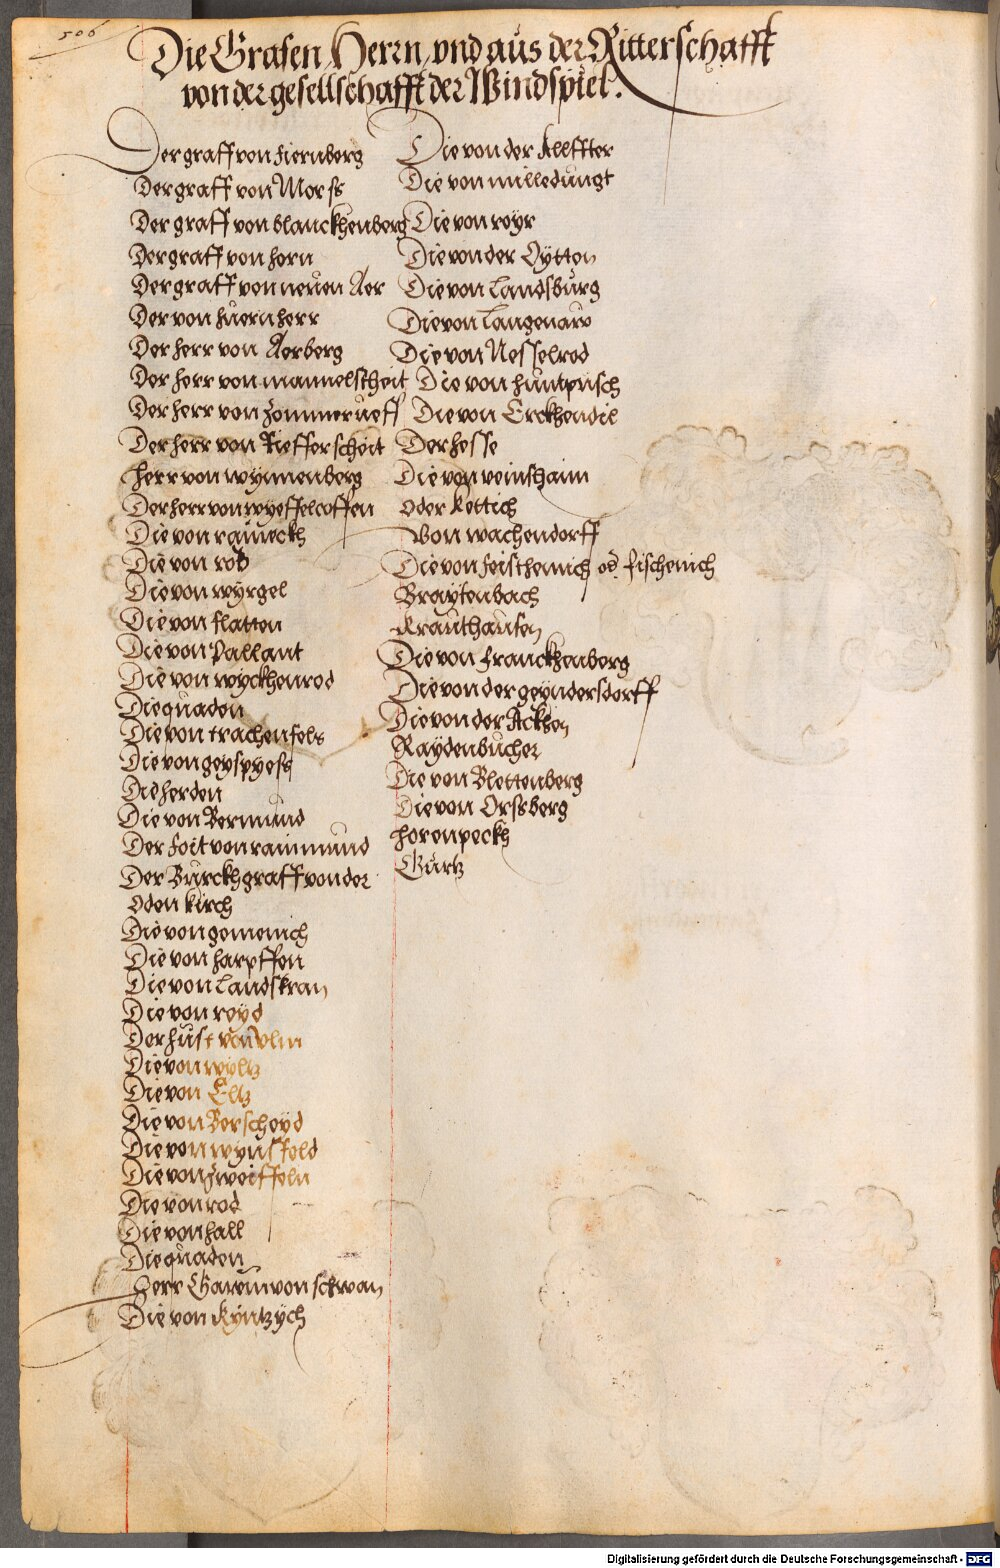 506
Die Grafen, Herrn, vnd aus der Ritterschafft
von der gesellschafft der Windspiel.
Der graff von fiernberg
Der graff von Morss
Der graff von blanckhenberg
Der graff von horn
Der graff von neuen Aer
Der von hüern herr
Der herr von Aerberg
Der herr von mannelscheit
Der herr von zommerueff
Der herr von Riefferscheit
herr von wynnenberg
Der herr von wyeffelcoffen
Die von raineckh
Die von rod
Die von wyrgel
Die von flatten
Die von Pallant
Die von wyckhenrod
Die quaden
Die von trachenfels
Die von geyspyess
Die herden
Die von Bermund
Der foit von rainmund
Der Burckhgraff von der
Odenkirch
Die von gemenich
Die von harpffen
Die von Landskran
Die von reyd
Der hust von vlm
Die von wyltz
Die von Eltz
Die von Berscheyd
Die von wynsfeld
Die von zweiffeln
Die von rod
Die von hall
Die quaden
Herr Garein von schwan
Die von kyntzych
Die von der Alffter
Die von milledungt
Die von royr
Die von der Eytten
Die von Landsburg
Die von Langenaw
Die von Nesselrod
Die von huntpusch
Die von Erckhendil
Der hesse
Die von veinshaim
oder Rettich
Von wachendorff
Die von feischenich od. fischenich
Braytenbach
Krauthausen
Die von franckhenberg
Die von der geyndersdorff
Die von der Ackhen
Raydenbucher
Die von Blettenberg
Die von Orssberg
horenpeckh
Gürtz
Digitalisierung gefördert durch die Deutsche Forschungsgemeinschaft - DFG